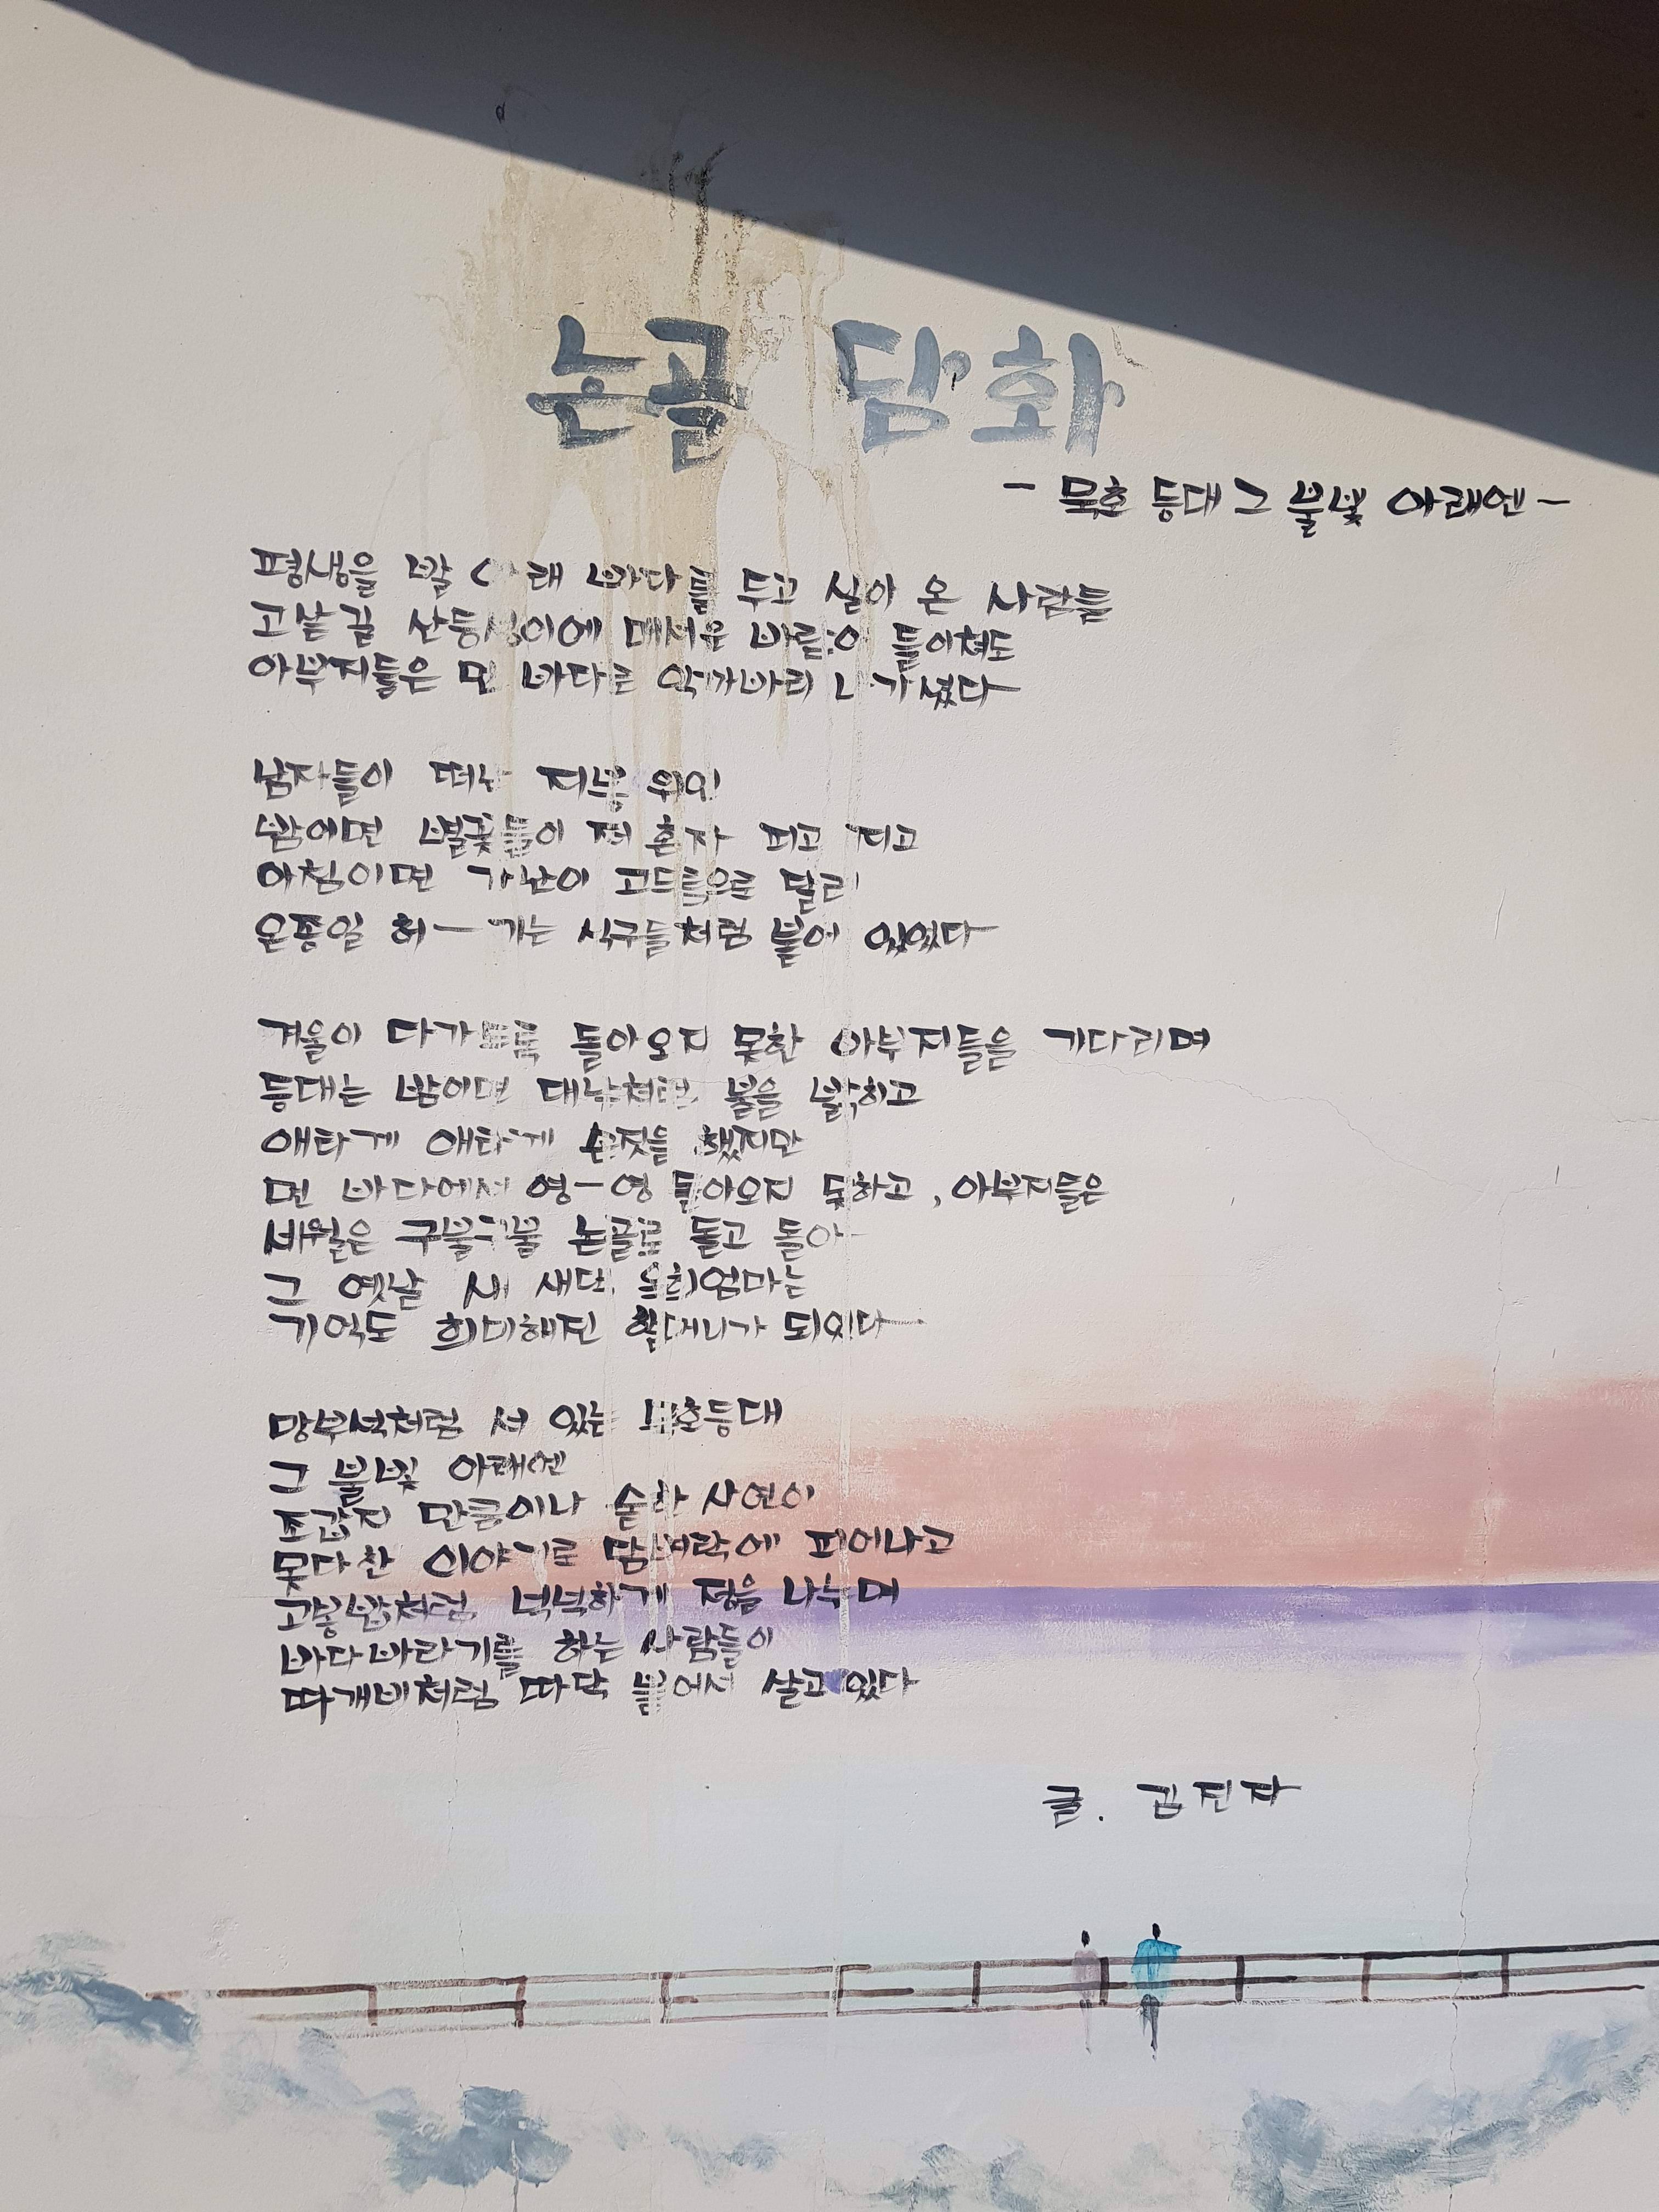 논골 담화
- 묵호 등대 그 불빛 아래엔 -
평생을 발 아래 바다를 두고 살아 온 사람들
고샅길 산등성이에 매서운 바람이 들이쳐도
아부지들은 먼 바다로 악가바리 나가셨다
남자들이 떠난 지붕 위엔
밤에면 별꽃들이 저 혼자 피고 지고
아침이면 가난이 고드름으로 달려
온종일 허ㅡ기는 식구들처럼 붙어 있었다
겨울이 다가도록 돌아오지 못한 아부지들을 기다리며
등대는 밤이면 대낮처럼 불을 밝히고
애타게 애타게 손짓을 했지만
먼 바다에서 영ㅡ영 돌아오지 못하고, 아부지들은
세월은 구불구불 논골로 돌고 돌아
그 옛날 새 새댁 엄마는
기억도 희미해진 할머니가 되었다
망부석처럼 서 있는 묵호등대
그 불빛 아래엔
조갑지 만큼이나 숱한 사연이
못다한 이야기로 담벼락에 피어나고
고봉밥처럼 넉넉하게 정을 나누며
바다바라기를 하는 사람들이
따개비처럼 따닥 붙어서 살고 있다
글. 김진자